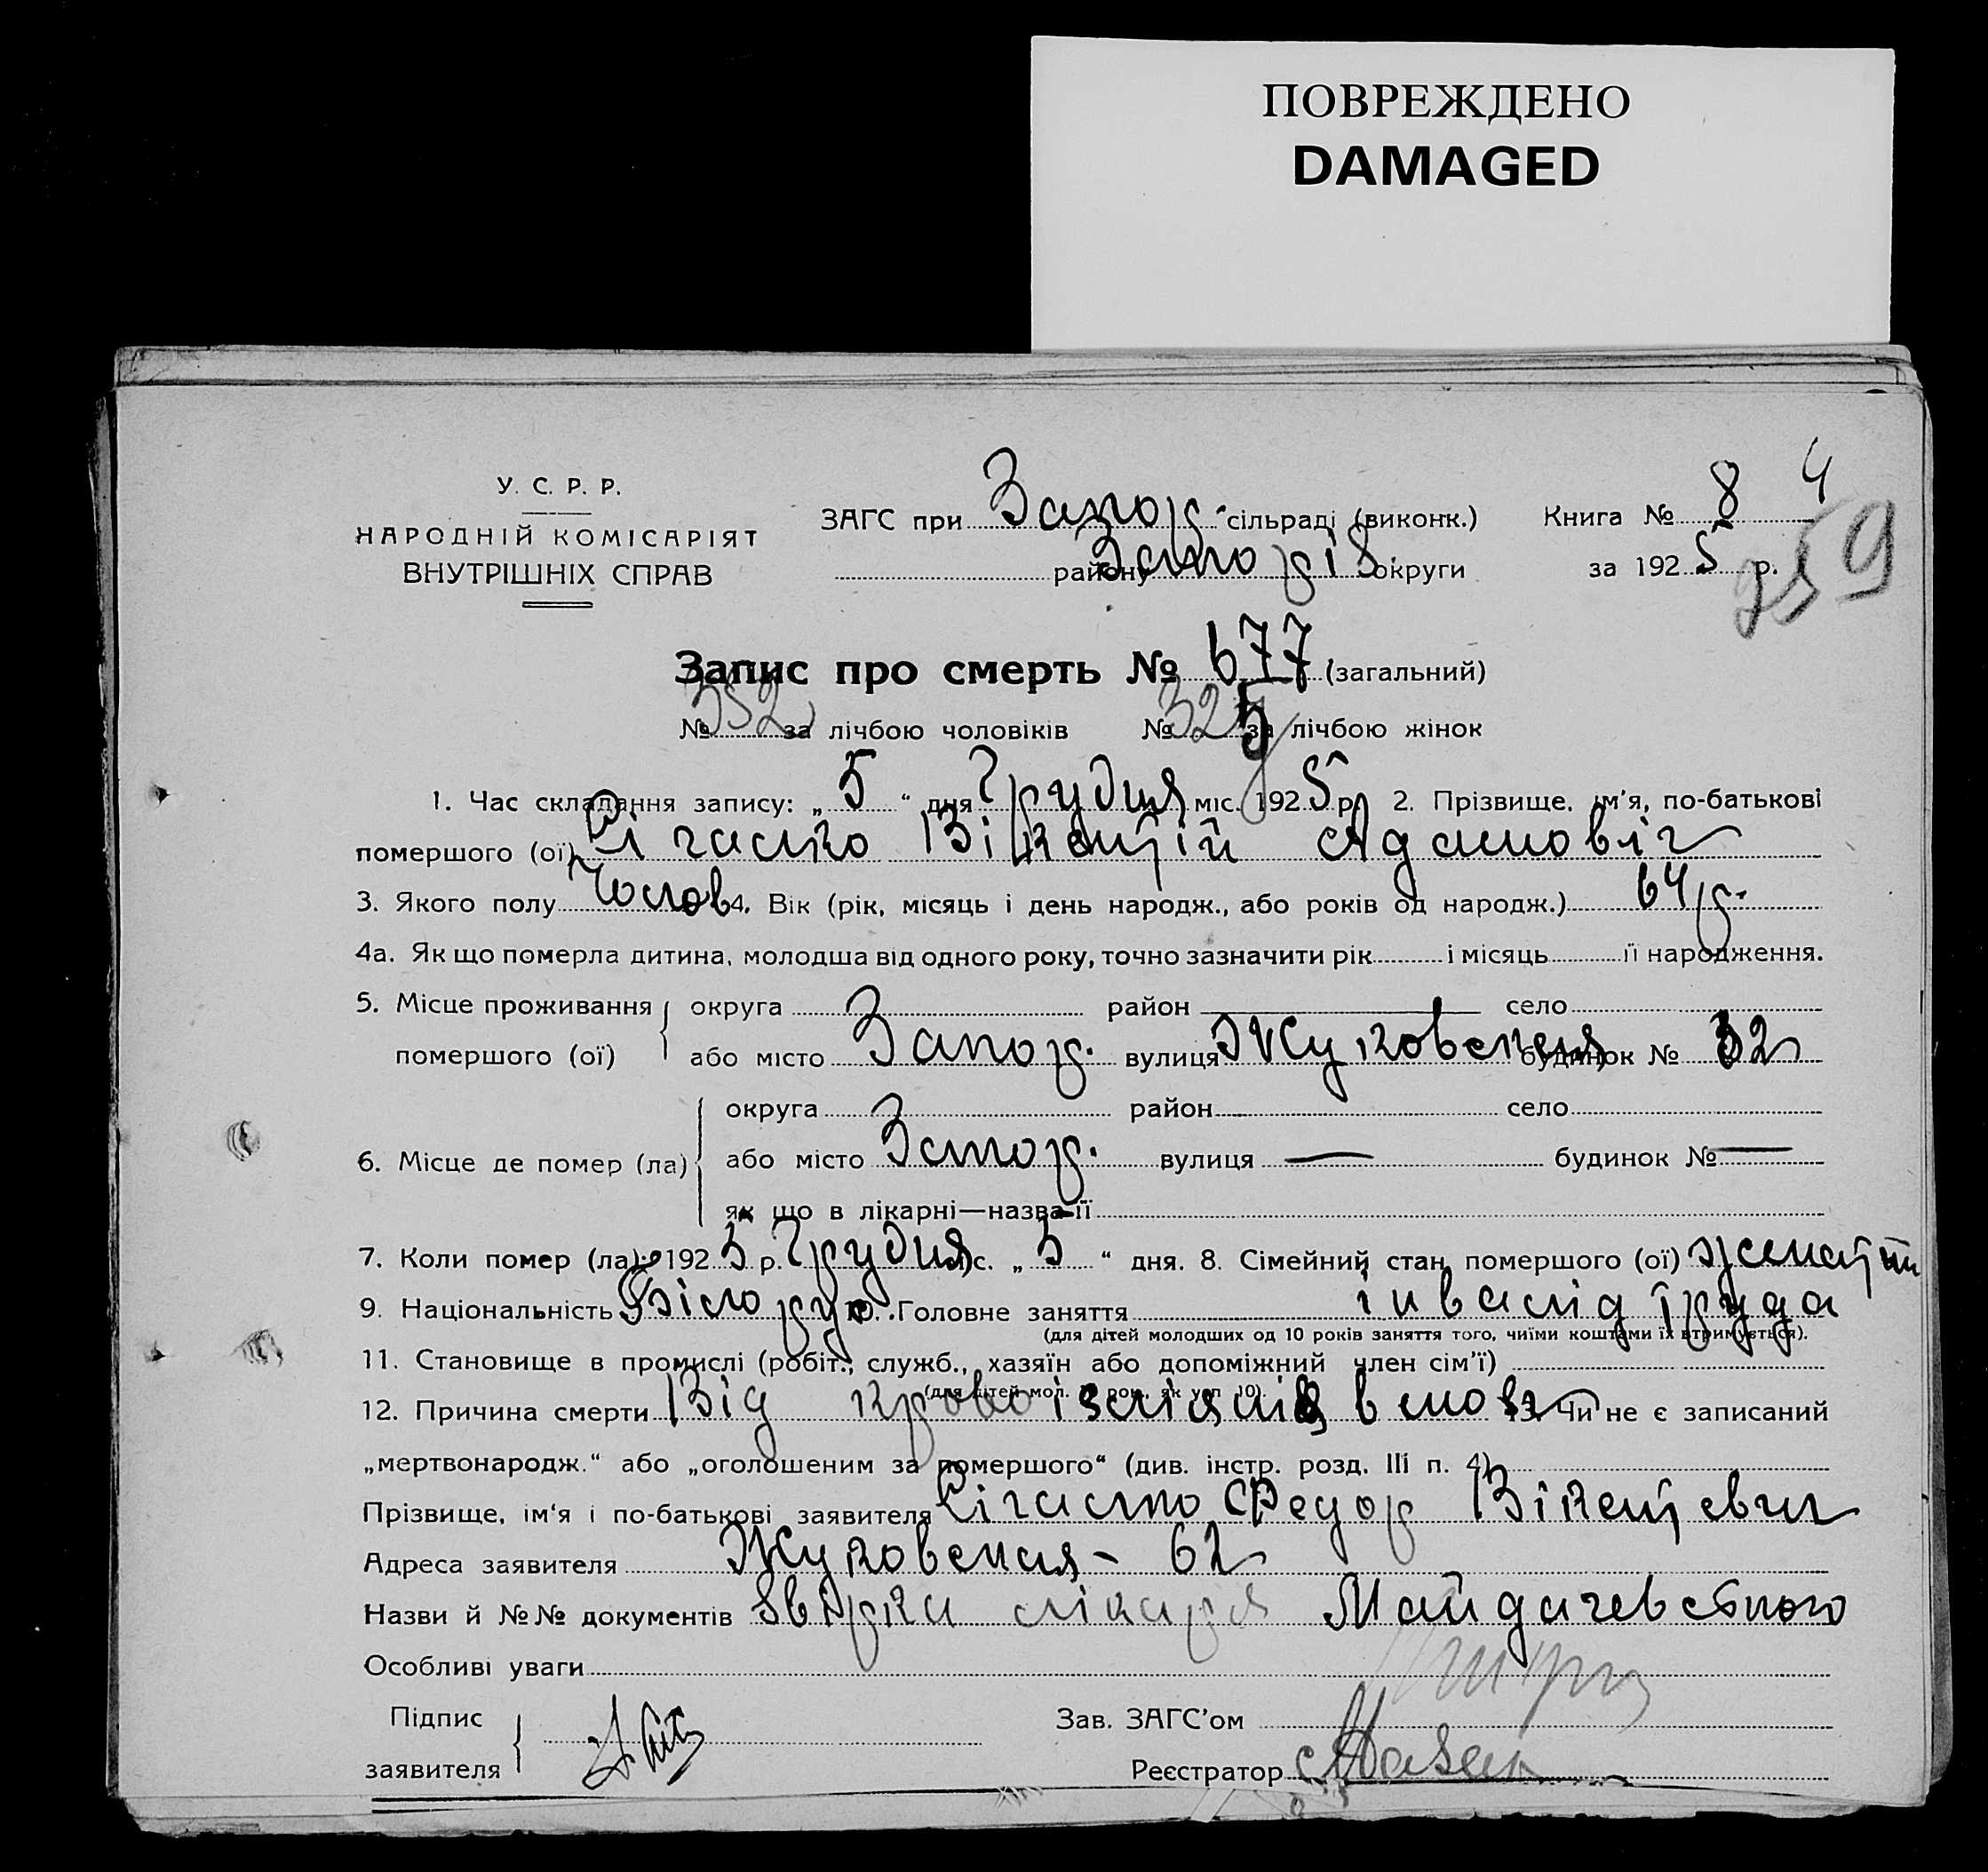 ПОВРЕЖДЕНО
DAMAGED
У. С. Р. Р.
НАРОДНІЙ КОМІСАРІЯТ
ВНУТРІШНІХ СПРАВ
ЗАГС при Запор. сільраді (виконк.)
району Запоріз. округи
Книга № 8 4
за 1925 р.
259
Запис про смерть № 677 (загальний)
№ 352 за лічбою чоловіків № 325 за лічбою жінок
1. Час складання запису: „ 5 “ дня Грудня міс. 1925 р. 2. Прізвище, ім'я, по-батькові
помершого (ої) Сігасто Вікентій Адамовіч
3. Якого полу Чолов 4. Вік (рік, місяць і день народж., або років од народж.) 64 р.
4а. Як що померла дитина, молодша від одного року, точно зазначити рік і місяць її народження.
5. Місце проживання помершого (ої) округа район село
або місто Запор. вулиця Жуковская будинок № 62
6. Місце де помер (ла) округа район село
або місто Запор. вулиця — будинок № —
як що в лікарні—назва її
7. Коли помер (ла): 1925 р. Грудня міс. „ 5 “ дня. 8. Сімейний стан помершого (ої) женатий
9. Національність Білорус 10. Головне заняття інвалід труда
(для дітей молодших од 10 років заняття того, чиїми коштами їх втримується).
11. Становище в промислі (робіт., служб., хазяїн або допоміжний член сім'ї)
(для дітей мол. 10 рок., як у п. 10).
12. Причина смерти Від кровоізліянія в мозг 13. Чи не є записаний
„мертвонародж.“ або „оголошеним за помершого“ (див. інстр. розд. III п. 4)
Прізвище, ім'я і по-батькові заявителя Сігасто Федор Вікентєвич
Адреса заявителя Жуковская - 62
Назви й №№ документів звірка лікаря Майдачевського
Особливі уваги
Підпис заявителя
Зав. ЗАГС'ом
Реєстратор